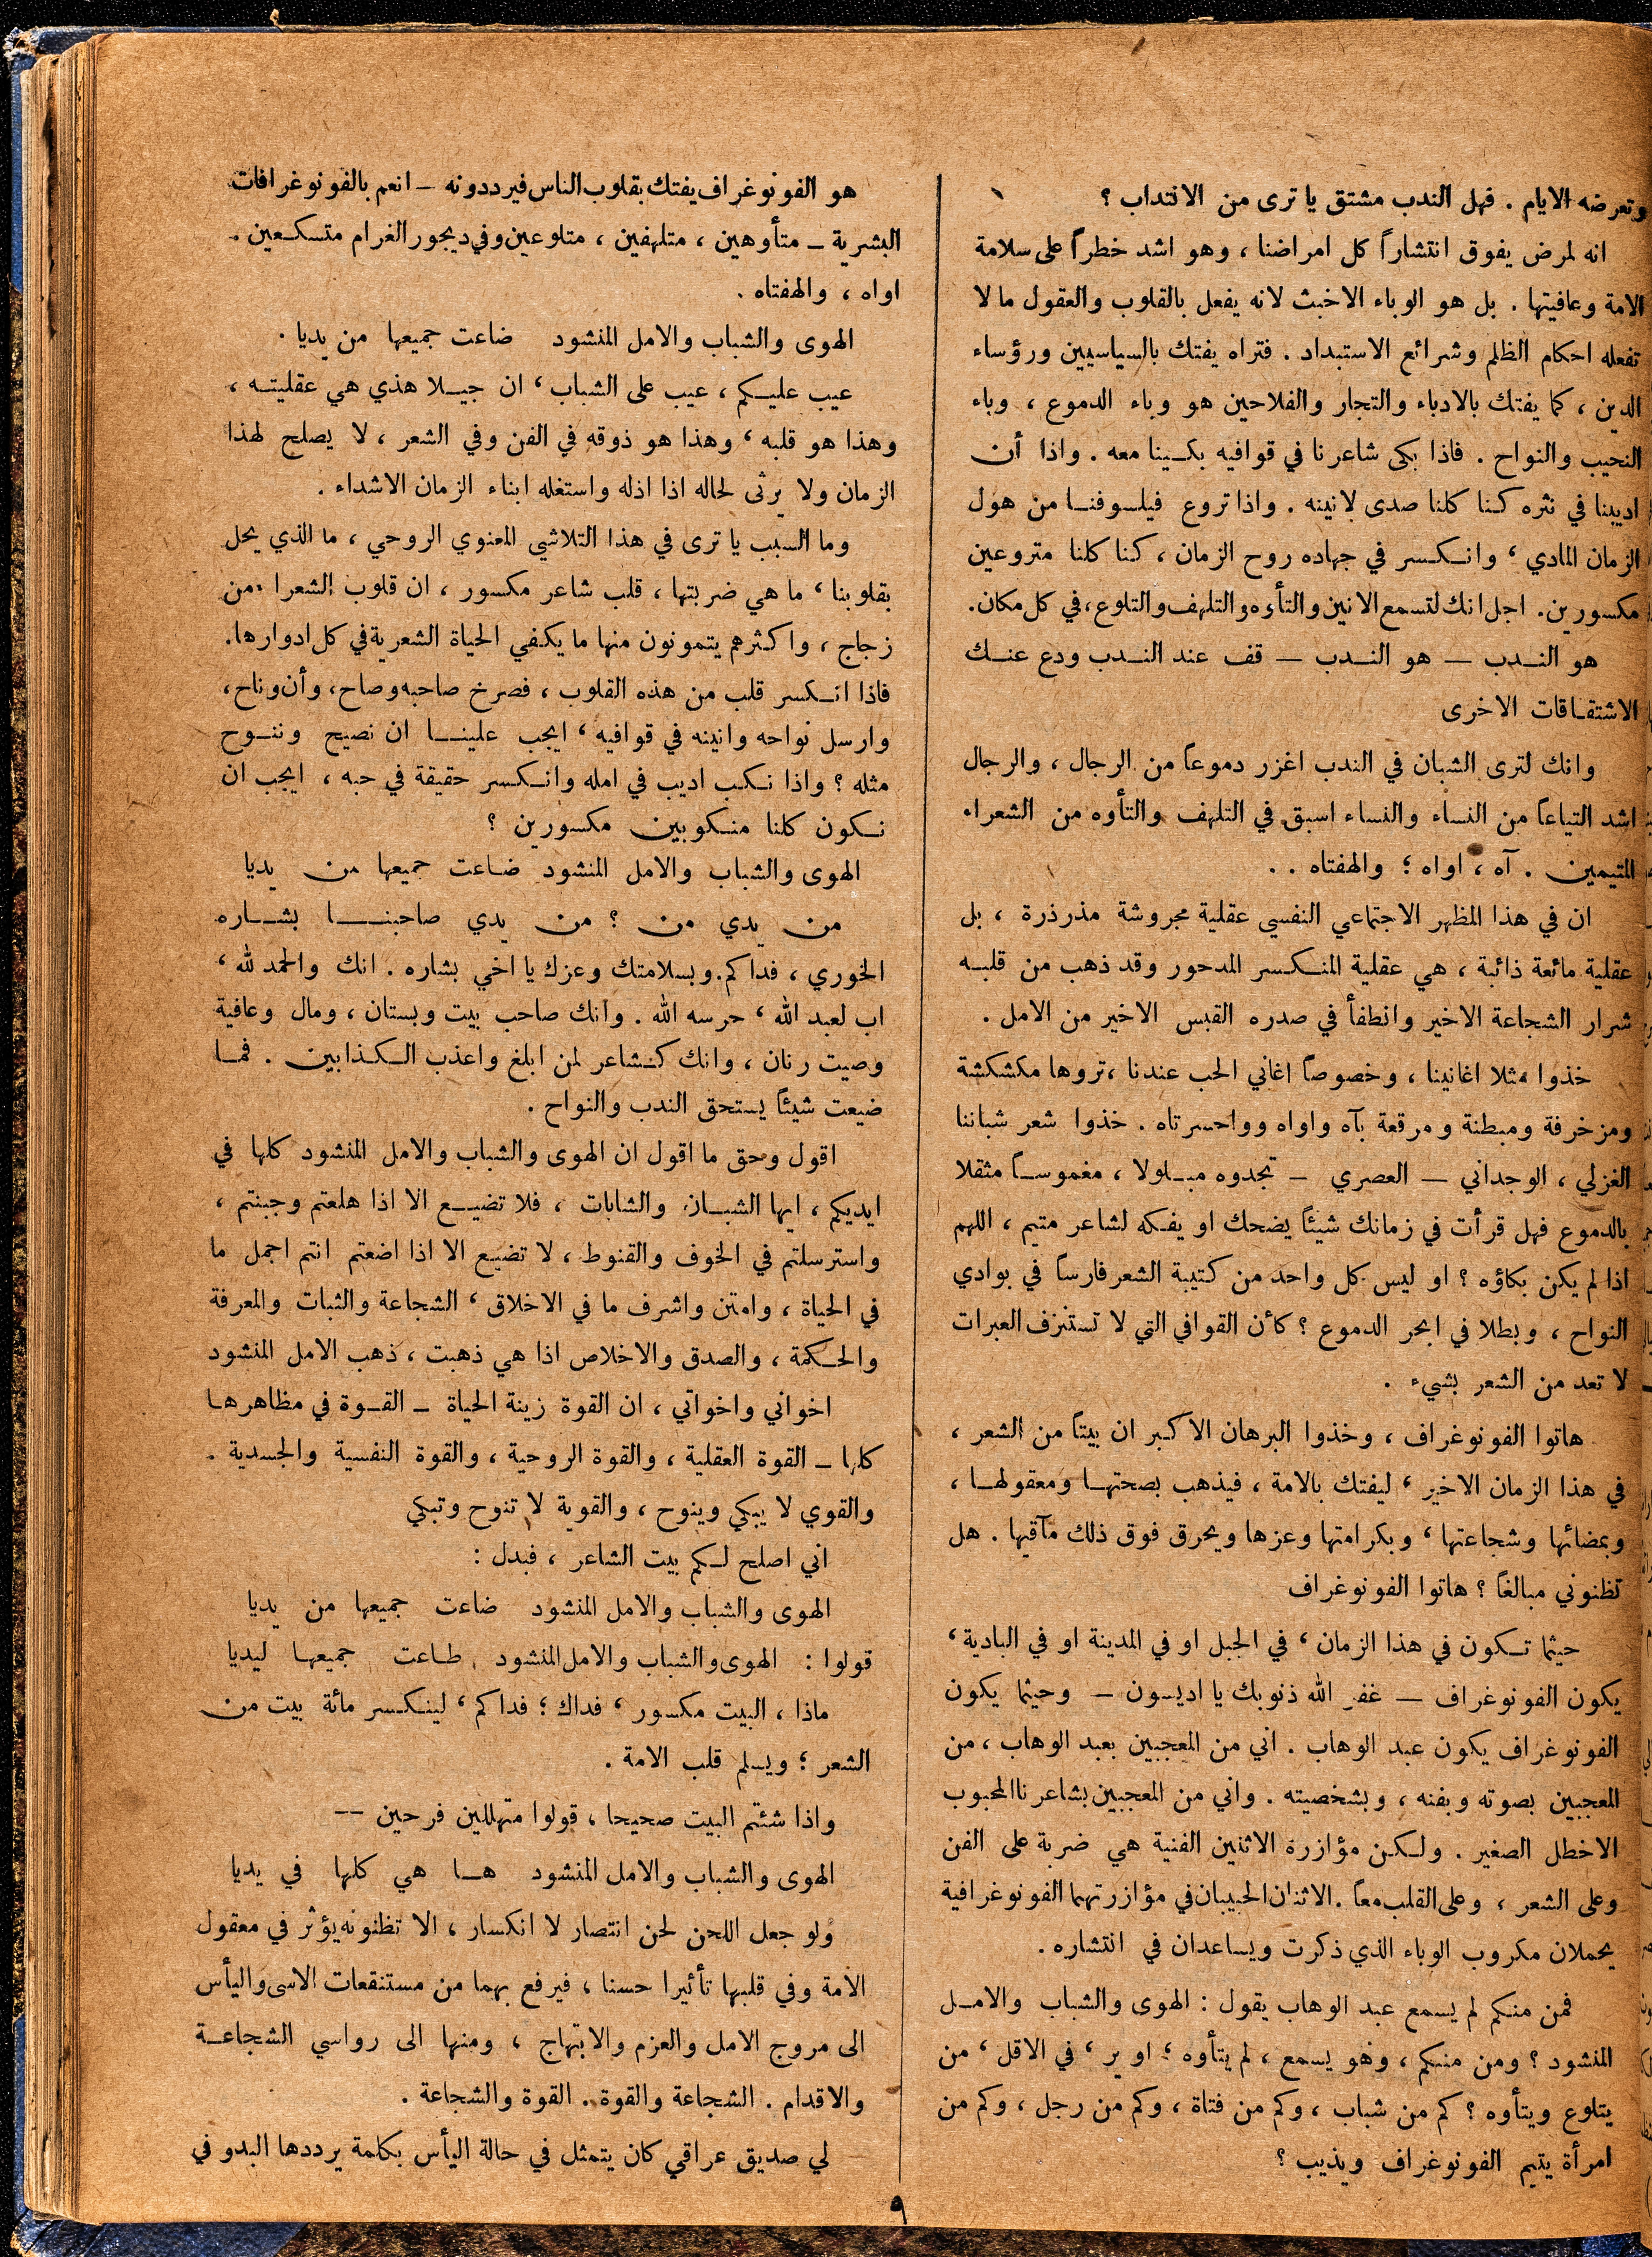 وتعرضه الايام . فهل الندب مشتق يا ترى من الانتداب ؟
انه لمرض يفوق انتشاراً كل امراضنا ، وهو اشد خطراً على سلامة
الامة وعافيتها . بل هو الوباء الاخبث لانه يفعل بالقلوب والعقول ما لا
تفعله احكام الظلم وشرائع الاستبداد . فتراه يفتك بالسياسيين ورؤساء
الدين ، كما يفتك بالادباء والتجار والفلاحين هو وباء الدموع ، وباء
النحيب والنواح . فاذا بكى شاعرنا في قوافيه بكينا معه . واذا أن
اديبنا في نثره كنا كلنا صدى لانينه . واذا تروع فيلسوفنا من هول
الزمان المادي ، وانكسر في جهاده روح الزمان ، كنا كلنا متروعين
مكسورين. اجل انك لتسمع الانين والتأوه والتلهف والتلوع، في كل مكان.
هو الندب — هو الندب — قف عند الندب ودع عنك
الاشتقاقات الاخرى
وانك لترى الشبان في الندب اغزر دموعاً من الرجال ، والرجال
اشد التياعاً من النساء والنساء اسبق في التلهف والتأوه من الشعراء
المتيمين . آه ، اواه ؛ والهفتاه . .
ان في هذا المظهر الاجتماعي النفسي عقلية مجروشة مذرذرة ، بل
عقلية مائعة ذائبة ، هي عقلية المنكسر المدحور وقد ذهب من قلبه
شرار الشجاعة الاخير وانطفأ في صدره القبس الاخير من الامل .
خذوا مثلا اغانينا ، وخصوصاً اغاني الحب عندنا ، تروها مكشكشة
ومزخرفة ومبطنة ومرقعة بآه واواه وواحسرتاه . خذوا شعر شباننا
الغزلي ، الوجداني — العصري — تجدوه مبلولا ، مغموساً مثقلا
بالدموع فهل قرأت في زمانك شيئاً يضحك او يفكه لشاعر متيم ، اللهم
اذا لم يكن بكاؤه ؟ او ليس كل واحد من كتيبة الشعر فارساً في بوادي
النواح ، وبطلا في ابحر الدموع ؟ كأن القوافي التي لا تستنزف العبرات
لا تعد من الشعر بشيء .
هاتوا الفونوغراف ، وخذوا البرهان الاكبر ان بيتاً من الشعر ،
في هذا الزمان الاخير ، ليفتك بالامة ، فيذهب بصحتها ومعقولها ،
وبمضائها وشجاعتها ، وبكرامتها وعزها ويحرق فوق ذلك مآقيها . هل
تظنوني مبالغاً ؟ هاتوا الفونوغراف
حيثما تكون في هذا الزمان ، في الجبل او في المدينة او في البادية ،
يكون الفونوغراف — غفر الله ذنوبك يا اديسون — وحيثما يكون
الفونوغراف يكون عبد الوهاب . اني من المعجبين بعبد الوهاب ، من
المعجبين بصوته وبفنه ، وبشخصيته . واني من المعجبين بشاعرنا المحبوب
الاخطل الصغير . ولكن مؤازرة الاثنين الفنية هي ضربة على الفن
وعلى الشعر ، وعلى القلب معاً . الاثنان الحبيبان في مؤازرتهما الفونوغرافية
يحملان مكروب الوباء الذي ذكرت ويساعدان في انتشاره .
فمن منكم لم يسمع عبد الوهاب يقول : الهوى والشباب والامل
المنشود ؟ ومن منكم ، وهو يسمع ، لم يتأوه ؛ او ير ، في الاقل ، من
يتلوع ويتأوه ؟ كم من شباب ، وكم من فتاة ، وكم من رجل ، وكم من
امرأة يتيم الفونوغراف ويذيب ؟
هو الفونوغراف يفتك بقلوب الناس فيرددونه — انعم بالفونوغرافات
البشرية — متأوهين ، متلهفين ، متلوعين وفي ديجور الغرام متسكعين .
اواه ، والهفتاه .
الهوى والشباب والامل المنشود ضاعت جميعها من يديا .
عيب عليكم ، عيب على الشباب ، ان جيلا هذي هي عقليته ،
وهذا هو قلبه ، وهذا هو ذوقه في الفن وفي الشعر ، لا يصلح لهذا
الزمان ولا يرثى لحاله اذا اذله واستغله ابناء الزمان الاشداء .
وما السبب يا ترى في هذا التلاشي المعنوي الروحي ، ما الذي يحل
بقلوبنا ، ما هي ضربتها ، قلب شاعر مكسور ، ان قلوب الشعراء من
زجاج ، واكثرهم يتمونون منها ما يكفي الحياة الشعرية في كل ادوارها.
فاذا انكسر قلب من هذه القلوب ، فصرخ صاحبه وصاح، وأن وناح،
وارسل نواحه وانينه في قوافيه ، ايجب علينا ان نصيح وننوح
مثله ؟ واذا نكب اديب في امله وانكسر حقيقة في حبه ، ايجب ان
نكون كلنا منكوبين مكسورين ؟
الهوى والشباب والامل المنشود ضاعت جميعها من يديا
من يدي من ؟ من يدي صاحبنا بشاره
الخوري ، فداكم . وبسلامتك وعزك يا اخي بشاره . انك والحمد لله ،
اب لعبد الله ، حرسه الله . وانك صاحب بيت وبستان ، ومال وعافية
وصيت رنان ، وانك كشاعر لمن ابلغ واعذب الكذابين . فما
ضيعت شيئاً يستحق الندب والنواح .
اقول وحق ما اقول ان الهوى والشباب والامل المنشود كلها في
ايديكم ، ايها الشبان والشابات ، فلا تضيع الا اذا هلعتم وجبنتم ،
واسترسلتم في الخوف والقنوط ، لا تضيع الا اذا اضعتم انتم اجمل ما
في الحياة ، وامتن واشرف ما في الاخلاق ، الشجاعة والثبات والمعرفة
والحكمة ، والصدق والاخلاص اذا هي ذهبت ، ذهب الامل المنشود
اخواني واخواتي ، ان القوة زينة الحياة — القوة في مظاهرها
كلها — القوة العقلية ، والقوة الروحية ، والقوة النفسية والجسدية .
والقوي لا يبكي وينوح ، والقوية لا تنوح وتبكي
اني اصلح لكم بيت الشاعر ، فبدل :
الهوى والشباب والامل المنشود ضاعت جميعها من يديا
قولوا : الهوى والشباب والامل المنشود طاعت جميعها ليديا
ماذا ، البيت مكسور ، فداك ؛ فداكم ، لينكسر مائة بيت من
الشعر ؛ ويسلم قلب الامة .
واذا شئتم البيت صحيحا ، قولوا متهللين فرحين --
الهوى والشباب والامل المنشود ها هي كلها في يديا
ولو جعل اللحن لحن انتصار لا انكسار ، الا تظنونه يؤثر في معقول
الامة وفي قلبها تأثيرا حسنا ، فيرفع بهما من مستنقعات الاسى واليأس
الى مروج الامل والعزم والابتهاج ، ومنها الى رواسي الشجاعة
والاقدام . الشجاعة والقوة . القوة والشجاعة .
لي صديق عراقي كان يتمثل في حالة اليأس بكلمة يرددها البدو في
٩